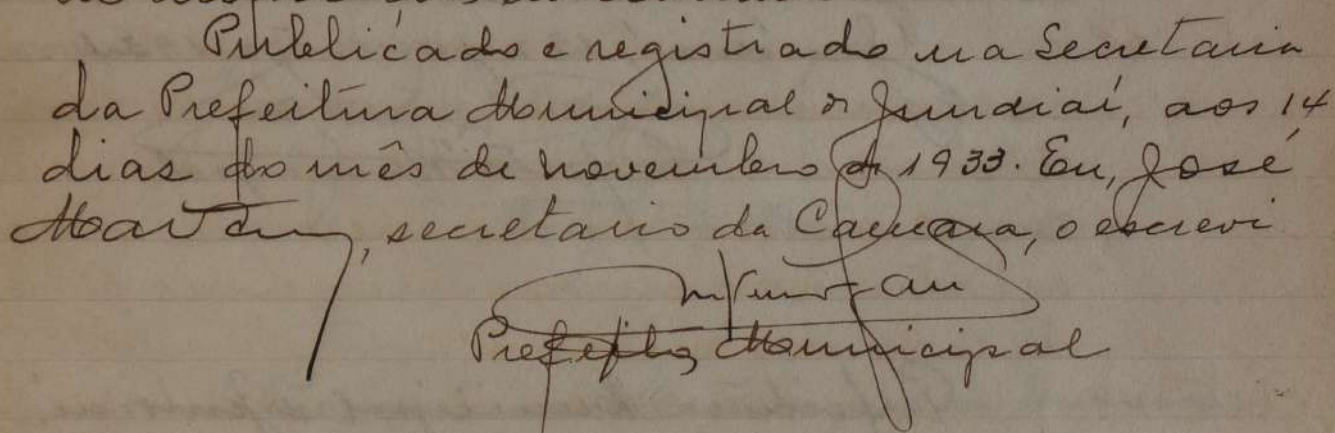 Publicado e registrado na Secretaria
da Prefeitura Municipal de Jundiaí, aos 14
dias do mês de novembro de 1933. Eu, José
, secretario da Camara, o escrevi
Prefeito Municipal